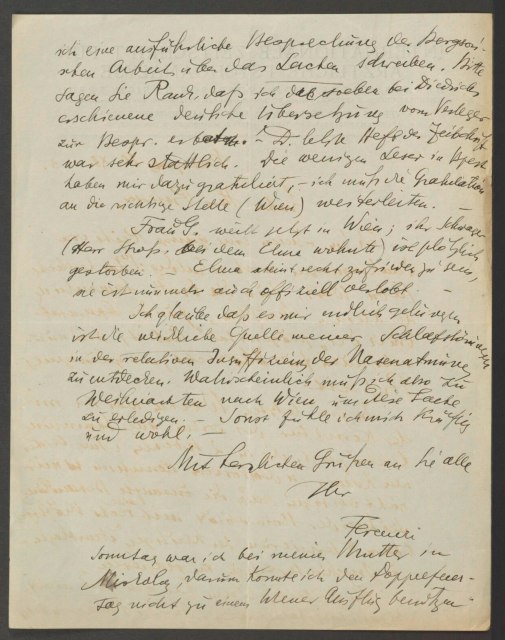 ich eine ausführliche Besprechung der Bergson'-
schen Arbeit über das Lachen schreiben. Bitte
sagen Sie Rank, daß ich die soeben bei Diedrichs
erschienene deutsche Übersetzung vom Verleger
zur Bespr. erbat. – D. letzte Heft der Zeitschrift
war sehr stattlich. Die wenigen Leser in Bpest
haben mir dazu gratuliert, – ich muß die Gratulation
an die richtige Stelle (Wien) weiterleiten. –
Frau G. weilt jetzt in Wien; ihr Schwager
(Herr bei dem Elma wohnte) ist plötzlich
gestorben. Elma scheint recht zufrieden zu sein,
sie ist nunmehr auch offiziell verlobt. –
Ich glaube daß es mir endlich gelungen
ist die wirkliche Quelle meiner Schlafstörungen
in der relativen Insuffizienz der Nasenatmung
zu entdecken. Wahrscheinlich muß ich also zu
Weihnachten nach Wien, um diese Sache
zu erledigen. – Sonst fühle ich mich kräftig
und wohl. –
Mit herzlichen Grüßen an Sie alle
Ihr
Ferenczi
Sonntag war ich bei meiner Mutter in
Miskolcz, darum konnte ich den Doppelfeier-
tag nicht zu einem Wiener Ausflug benützen.